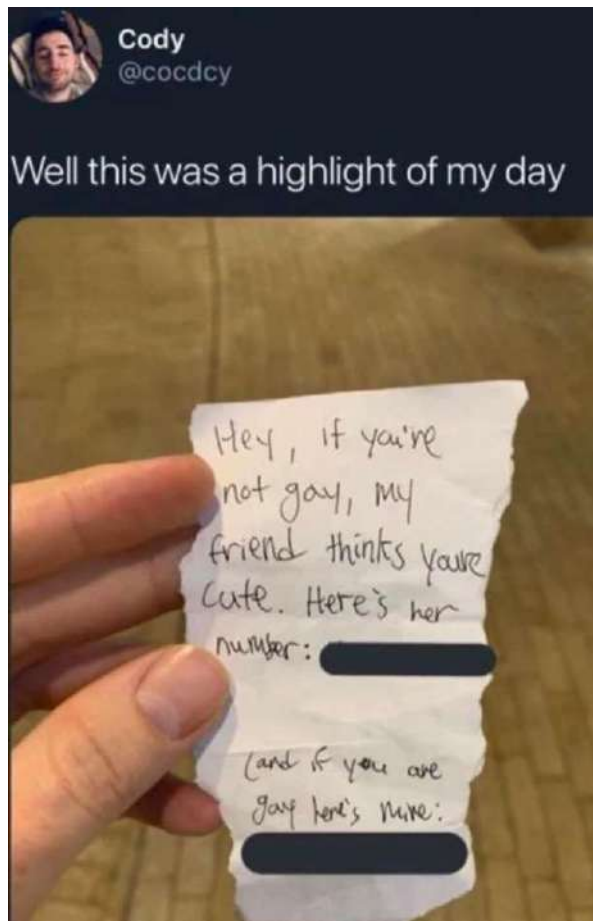 Cody
@cocdcy
Well this was a highlight of my day
Hey, if you're
not gay, my
friend thinks youre
cute. Here's her
number:
(and if you are
gay here's mine: